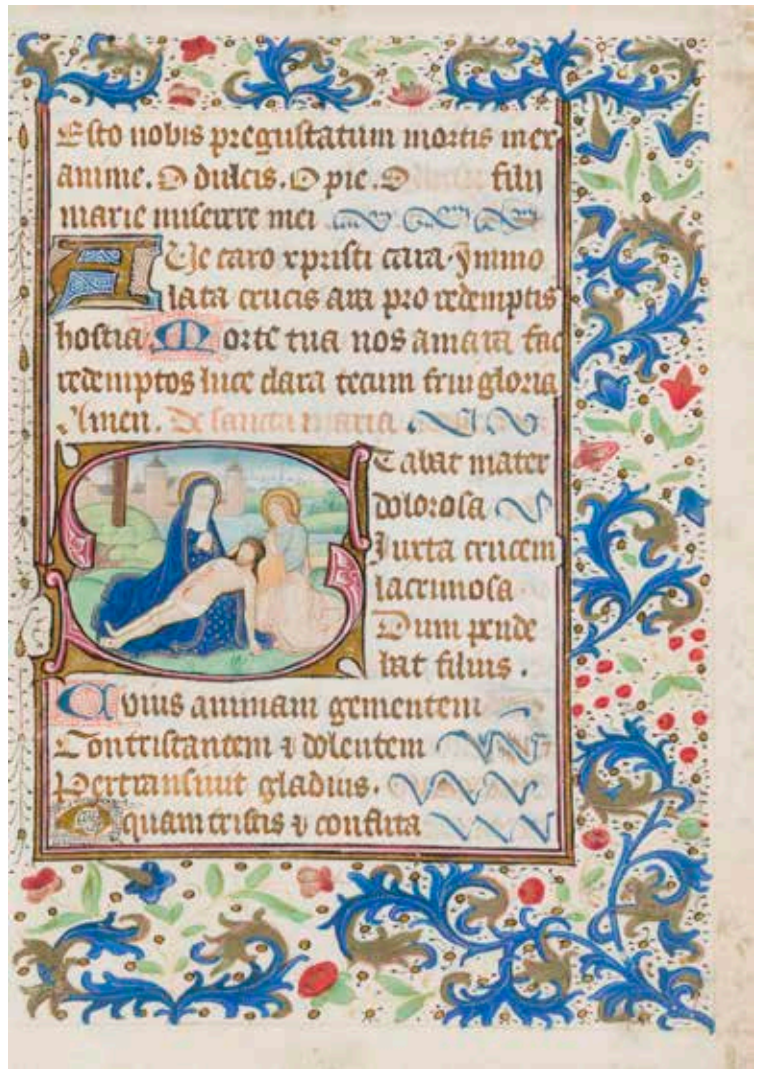 Esto nobis pregustatum mortis in ex
amine. O dulcis. O pie. O fili
marie miserere mei
AUe caro xpristi cara. Jmmo
lata crucis ara pro redemptis
hostia. Morte tua nos amara fac
redemptos luce clara tecum frui gloria
Amen. De sancta maria
Stabat mater
dolorosa
Juxta crucem
lacrimosa
Dum pende
bat filius.
Cuius animam gementem
Contristantem ⁊ dolentem
Pertransiuit gladius.
O quam tristis ⁊ afflicta